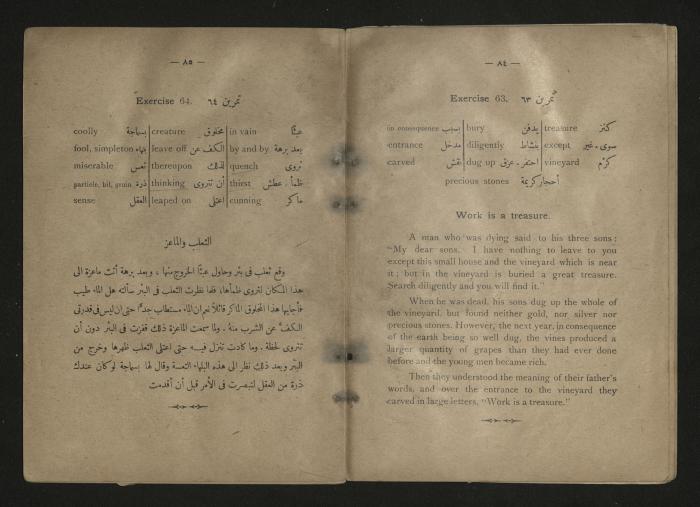 — ٨٤ —
Exercise 63. تمرين ٦٣
in consequence بسبب bury يدفن treasure كنز
entrance مدخل diligently بنشاط except سوى - غير
carved نقش dug up احتفر - عزق vineyard كرم
precious stones أحجار كريمة
Work is a treasure.
A man who was dying said to his three sons:
"My dear sons. I have nothing to leave to you
except this small house and the vineyard which is near
it; but in the vineyard is buried a great treasure.
Search diligently and you will find it."
When he was dead, his sons dug up the whole of
the vineyard, but found neither gold, nor silver nor
precious stones. However, the next year, in consequence
of the earth being so well dug, the vines produced a
larger quantity of grapes than they had ever done
before and the young men became rich.
Then they understood the meaning of their father's
words, and over the entrance to the vineyard they
carved in large letters, "Work is a treasure."
— ٨٥ —
Exercise 64. تمرين ٦٤
coolly بسماجة creature مخلوق in vain عبثًا
fool, simpleton leave off الكف عن by and by بعد برهة
miserable تعس thereupon لذلك quench تروى
particle, bit, grain ذرة thinking أن تتروى thirst ظمأ . عطش
sense العقل leaped on اعتلى cunning ماكر
الثعلب والماعز
وقع ثعلب فى بئر وحاول عبثًا الخروج منها ، وبعد برهة أتت ماعزة الى
هذا المكان لتروى ظمأها، فلما نظرت الثعلب فى البئر سألته هل الماء طيب
فأجابها هذا المخلوق الماكر قائلاً نعم ان الماء مستطاب جدًا حتى ان ليس فى قدرتى
الكف عن الشرب منه . ولما سمعت الماعزة ذلك قفزت فى البئر دون أن
تتروى لحظة . وما كادت تنزل فيه حتى اعتلى الثعلب ظهرها وخرج من
البئر وبعد ذلك نظر الى هذه البلهاء التعسة وقال لها بسماجة لو كان عندك
ذرة من العقل لتبصرت فى الأمر قبل أن أقدمت